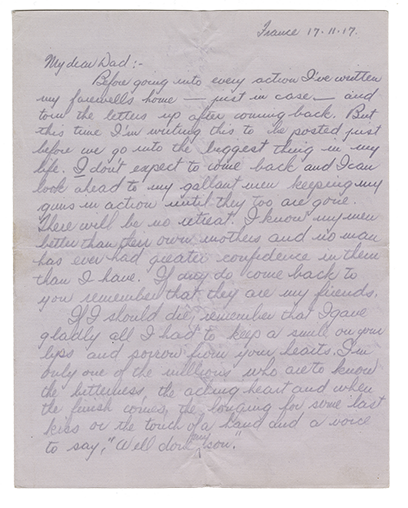 France 17.11.17.
My dear Dad:-
Before going into every action I've written
my farewells home — just in case — and
torn the letters up after coming back. But
this time I'm writing this to be posted just
before we go into the biggest thing in my
life. I don't expect to come back and I can
look ahead to my gallant men keeping my
guns in action until they too are gone.
There will be no retreat. I know my men
better than their own mothers and no man
has ever had greater confidence in them
than I have. If any do come back to
you remember that they are my friends.
If I should die, remember that I gave
gladly all I had to keep a smile on your
lips and sorrow from your hearts. I'm
only one of the millions who are to know
the bitterness, the aching heart and when
the finish comes, the longing for some last
kiss or the touch of a hand and a voice
to say, "Well done my son."